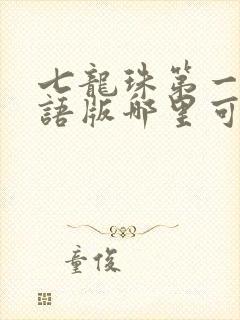 七龍珠第一
語版哪里可
童俊